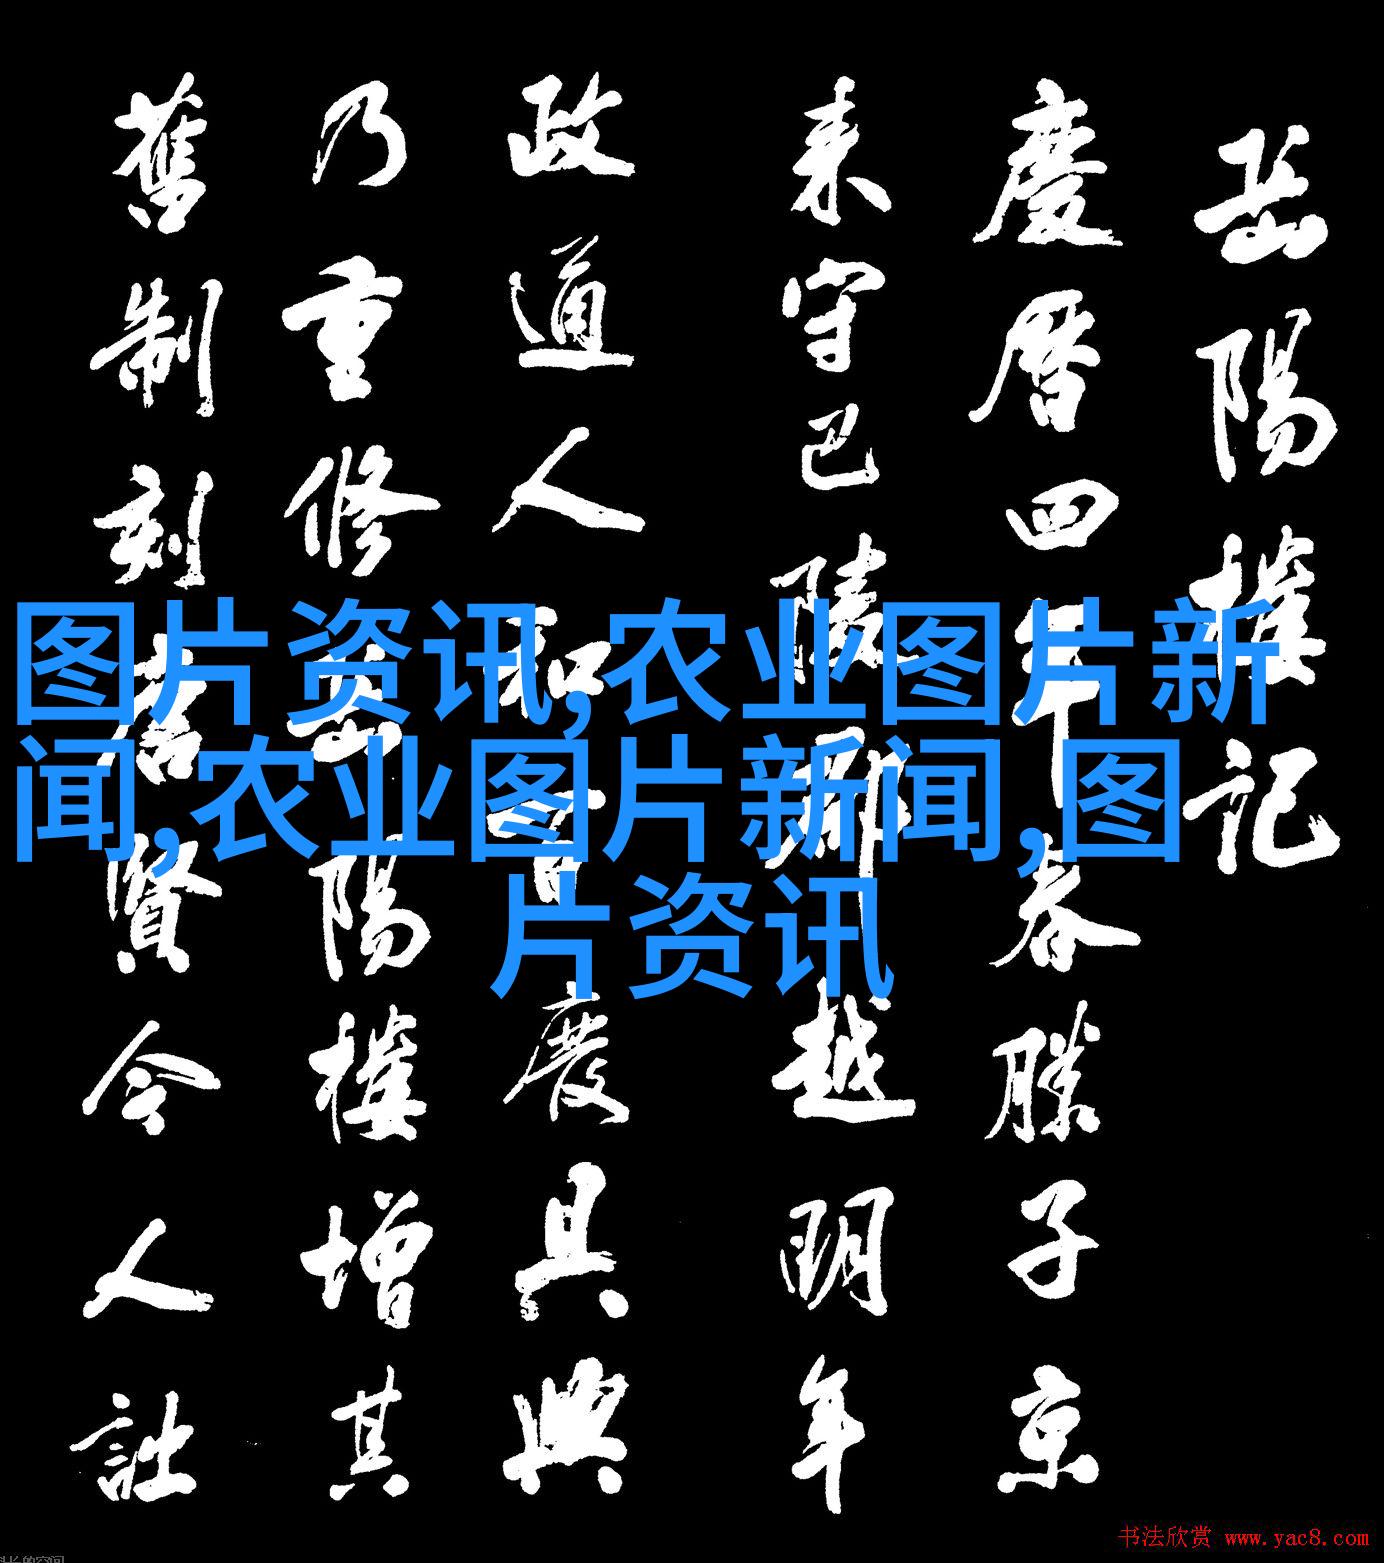 岳陽樓記
慶曆四年春滕子京
来守巴陵郡越明年
政通人和百廢具興
乃重修岳陽樓增其
舊制刻唐賢今人詩
图片资讯,农业图片新
闻,农业图片新闻,图
片资讯
书法欣赏 www.yac8.com